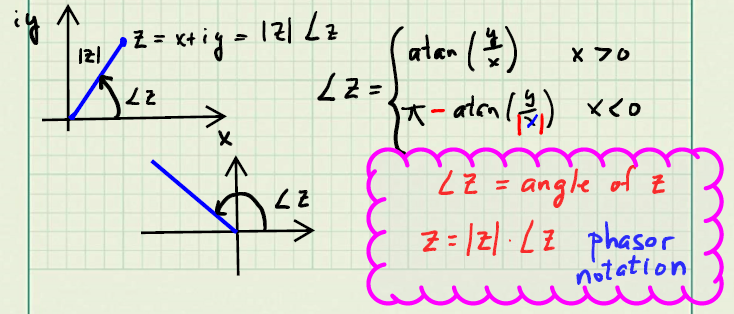 iy
z = x+iy = |z| ∠z
|z|
∠z
x
∠z = { atan(y/x)  x > 0
π - atan(y/|x|)  x < 0
∠z
∠z = angle of z
z = |z| · ∠z  phasor
notation